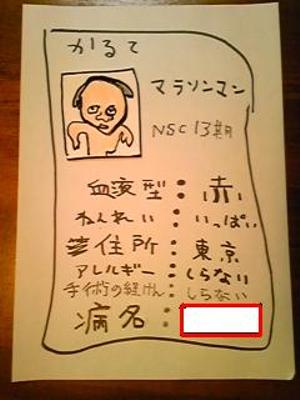 かるて
マラソンマン
NSC 13期
血液型：赤い
ねんれい：いっぱい
住所：東京
アレルギー：しらない
手術の経けん：しらない
病名：